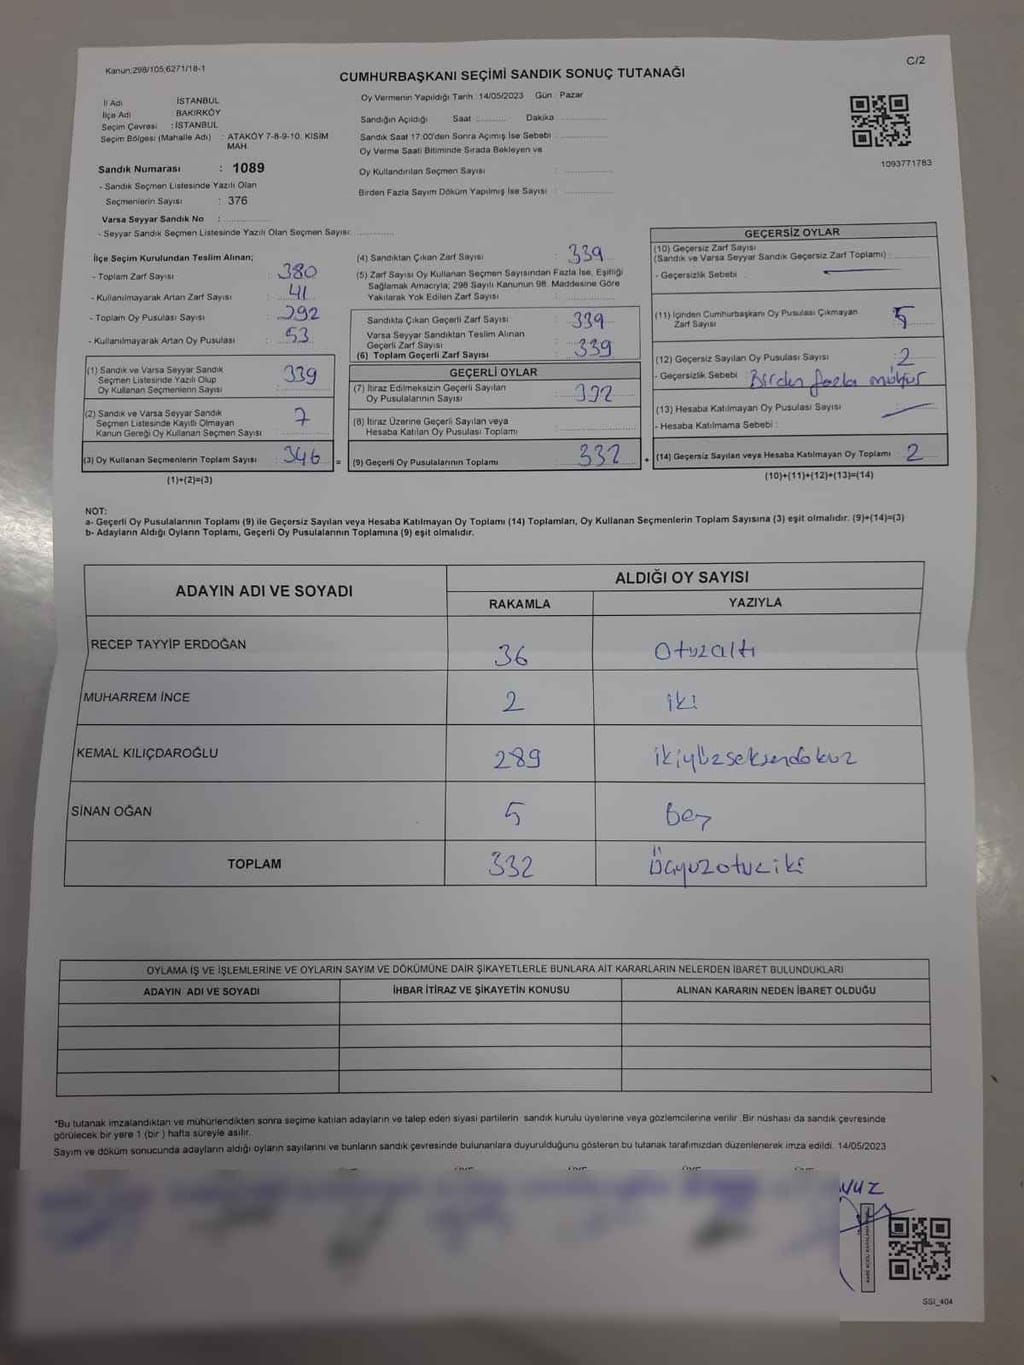 Kanun;298/105;6271/18-1
C/2
CUMHURBAŞKANI SEÇİMİ SANDIK SONUÇ TUTANAĞI
İl Adı : İSTANBUL
İlçe Adı : BAKIRKÖY
Seçim Çevresi : İSTANBUL
Seçim Bölgesi (Mahalle Adı) : ATAKÖY 7-8-9-10. KISIM
MAH.
Sandık Numarası : 1089
- Sandık Seçmen Listesinde Yazılı Olan
Seçmenlerin Sayısı : 376
Varsa Seyyar Sandık No : ............
- Seyyar Sandık Seçmen Listesinde Yazılı Olan Seçmen Sayısı: ............
Oy Vermenin Yapıldığı Tarih : 14/05/2023 Gün : Pazar
Sandığın Açıldığı Saat ............ Dakika ............
Sandık Saat 17:00'den Sonra Açımış İse Sebebi : ............
Oy Verme Saati Bitiminde Sırada Bekleyen ve
Oy Kullandırılan Seçmen Sayısı : ............
Birden Fazla Sayım Döküm Yapılmış İse Sayısı : ............
1093771783
İlçe Seçim Kurulundan Teslim Alınan;
- Toplam Zarf Sayısı : 380
- Kullanılmayarak Artan Zarf Sayısı : 41
- Toplam Oy Pusulası Sayısı : 392
- Kullanılmayarak Artan Oy Pusulası : 53
(1) Sandık ve Varsa Seyyar Sandık
Seçmen Listesinde Yazılı Olup
Oy Kullanan Seçmenlerin Sayısı : 339
(2) Sandık ve Varsa Seyyar Sandık
Seçmen Listesinde Kayıtlı Olmayan
Kanun Gereği Oy Kullanan Seçmen Sayısı : 7
(3) Oy Kullanan Seçmenlerin Toplam Sayısı : 346 =
(1)+(2)=(3)
(4) Sandıktan Çıkan Zarf Sayısı : 339
(5) Zarf Sayısı Oy Kullanan Seçmen Sayısından Fazla İse, Eşitliği
Sağlamak Amacıyla; 298 Sayılı Kanunun 98. Maddesine Göre
Yakılarak Yok Edilen Zarf Sayısı : ............
Sandıkta Çıkan Geçerli Zarf Sayısı : 339
Varsa Seyyar Sandıktan Teslim Alınan
Geçerli Zarf Sayısı
(6) Toplam Geçerli Zarf Sayısı : 339
GEÇERLİ OYLAR
(7) İtiraz Edilmeksizin Geçerli Sayılan
Oy Pusulalarının Sayısı : 332
(8) İtiraz Üzerine Geçerli Sayılan veya
Hesaba Katılan Oy Pusulası Toplamı : ............
(9) Geçerli Oy Pusulalarının Toplamı : 332 +
GEÇERSİZ OYLAR
(10) Geçersiz Zarf Sayısı
(Sandık ve Varsa Seyyar Sandık Geçersiz Zarf Toplamı) : ............
- Geçersizlik Sebebi :
(11) İçinden Cumhurbaşkanı Oy Pusulası Çıkmayan
Zarf Sayısı : 5
(12) Geçersiz Sayılan Oy Pusulası Sayısı : 2
- Geçersizlik Sebebi : Birden fazla mühür
(13) Hesaba Katılmayan Oy Pusulası Sayısı :
- Hesaba Katılmama Sebebi :
(14) Geçersiz Sayılan veya Hesaba Katılmayan Oy Toplamı : 2
(10)+(11)+(12)+(13)=(14)
NOT:
a- Geçerli Oy Pusulalarının Toplamı (9) ile Geçersiz Sayılan veya Hesaba Katılmayan Oy Toplamı (14) Toplamları, Oy Kullanan Seçmenlerin Toplam Sayısına (3) eşit olmalıdır. (9)+(14)=(3)
b- Adayların Aldığı Oyların Toplamı, Geçerli Oy Pusulalarının Toplamına (9) eşit olmalıdır.
ADAYIN ADI VE SOYADI ALDIĞI OY SAYISI
RAKAMLA YAZIYLA
RECEP TAYYİP ERDOĞAN 36 otuzaltı
MUHARREM İNCE 2 iki
KEMAL KILIÇDAROĞLU 289 ikiyüzseksendokuz
SİNAN OĞAN 5 beş
TOPLAM 332 üçyüzotuziki
OYLAMA İŞ VE İŞLEMLERİNE VE OYLARIN SAYIM VE DÖKÜMÜNE DAİR ŞİKAYETLERLE BUNLARA AİT KARARLARIN NELERDEN İBARET BULUNDUKLARI
ADAYIN ADI VE SOYADI İHBAR İTİRAZ VE ŞİKAYETİN KONUSU ALINAN KARARIN NEDEN İBARET OLDUĞU
*Bu tutanak imzalandıktan ve mühürlendikten sonra seçime katılan adayların ve talep eden siyasi partilerin sandık kurulu üyelerine veya gözlemcilerine verilir. Bir nüshası da sandık çevresinde
görülecek bir yere 1 (bir ) hafta süreyle asılır.
Sayım ve döküm sonucunda adayların aldığı oyların sayılarını ve bunların sandık çevresinde bulunanlara duyurulduğunu gösteren bu tutanak tarafımızdan düzenlenerek imza edildi. 14/05/2023
SSI_404